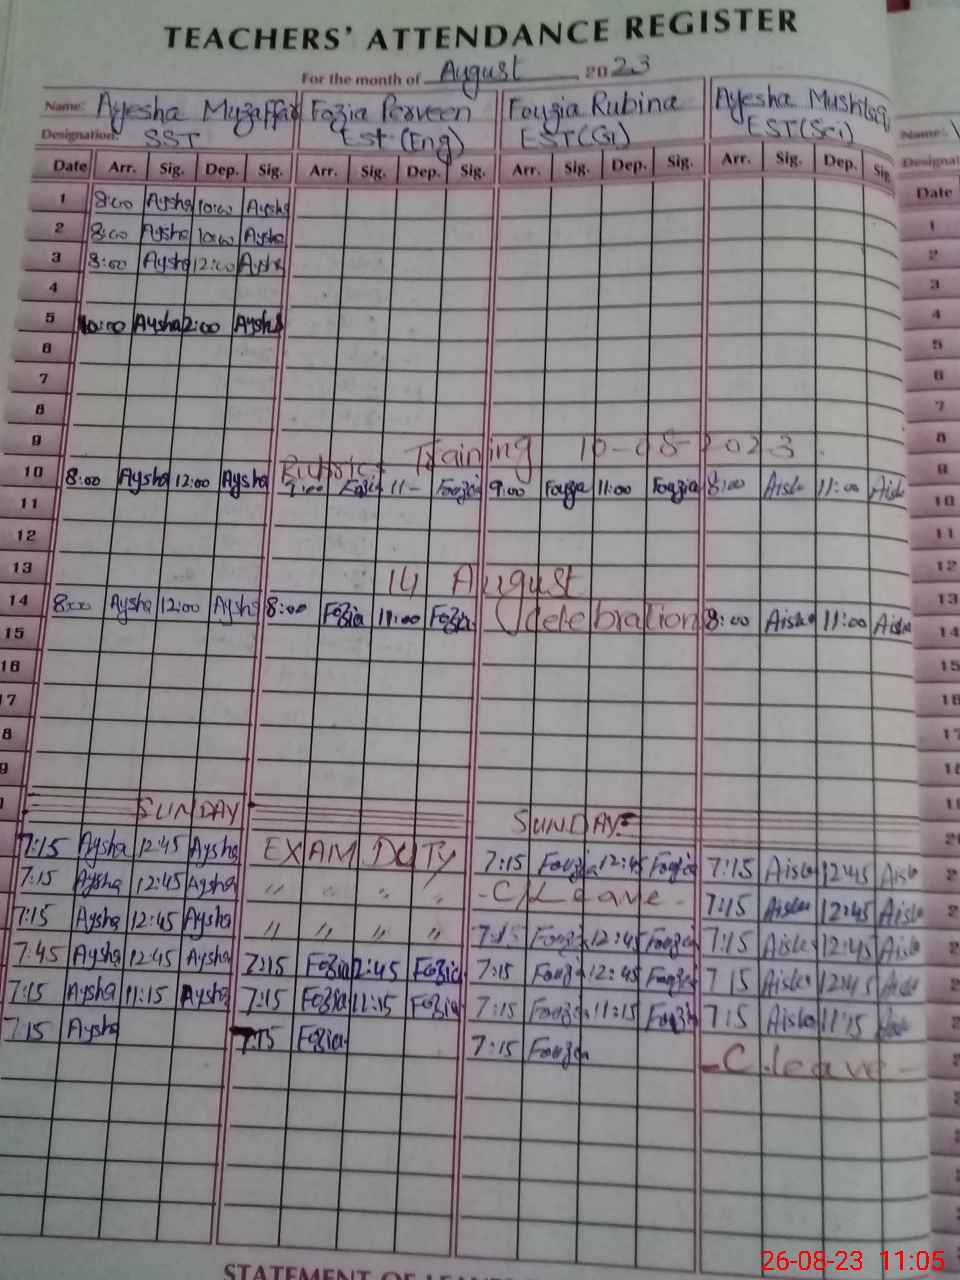 TEACHERS' ATTENDANCE REGISTER
For the month of August 2023
Name: Ayesha Muzaffar Fozia Perveen Fouzia Rubina Ayesha Mushtaq Name:
Designation: SST Est (Eng) EST(G) EST(Sci)
Date Arr. Sig. Dep. Sig. Arr. Sig. Dep. Sig. Arr. Sig. Dep. Sig. Arr. Sig. Dep. Sig. Date
1 8:00 Aysha 10:00 Aysha 1
2 8:00 Aysha 10:00 Aysha 2
3 8:00 Aysha 12:00 Aysha 3
4 4
5 10:00 Aysha 2:00 Aysha 5
6 6
7 7
8 8
9 Training 10-08-2023 9
10 8:00 Aysha 12:00 Aysha 9:00 Fozia 11- Fouzia 9:00 Fouzia 11:00 Fouzia 8:00 Aisha 11:00 Aisha 10
11 11
12 12
13 14 August 13
14 8:00 Aysha 12:00 Aysha 8:00 Fozia 11:00 Fozia Celebration 8:00 Aisha 11:00 Aisha 14
15 15
16
17
8
9
SUNDAY SUNDAY
7:15 Aysha 12:45 Aysha EXAM DUTY 7:15 Fouzia 12:45 Fouzia 7:15 Aisha 12:45 Aisha
7:15 Aysha 12:45 Aysha " " " " -C/Leave- 7:15 Aisha 12:45 Aisha
7:15 Aysha 12:45 Aysha " " " " 7:15 Fouzia 12:45 Fouzia 7:15 Aisha 12:45 Aisha
7:45 Aysha 12:45 Aysha 7:15 Fozia 12:45 Fozia 7:15 Fouzia 12:45 Fouzia 7 15 Aisha 12:45 Aisha
7:15 Aysha 11:15 Aysha 7:15 Fozia 11:15 Fozia 7:15 Fouzia 11:15 Fouzia 7:15 Aisha 11:15
7:15 Aysha 7:15 Fozia 7:15 Fouzia -C.leave-
STATEMENT OF
26-08-23 11:05